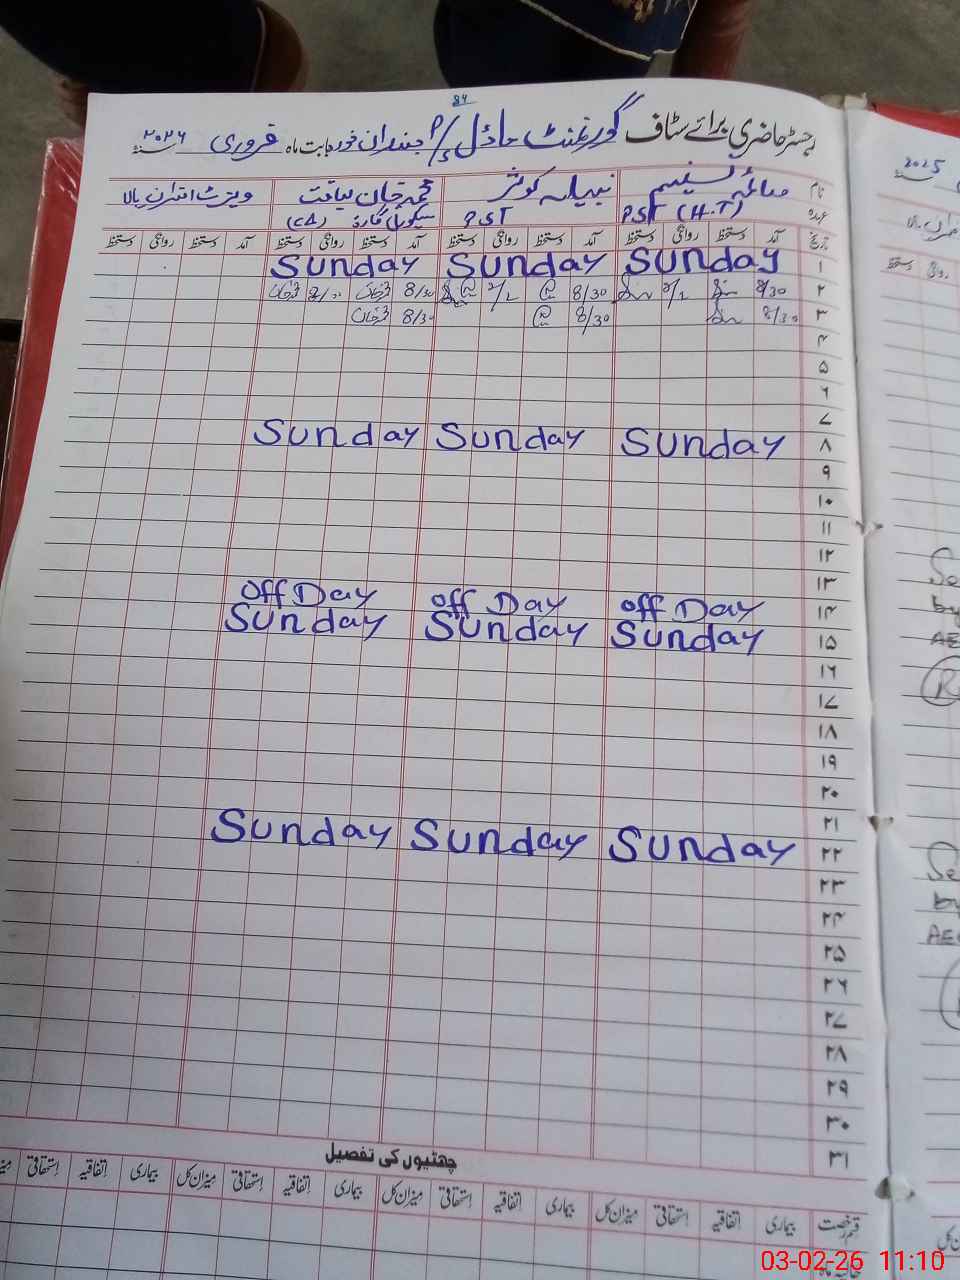 84
رجسٹر حاضری برائے سٹاف گورنمنٹ ماڈل P/S جندران خورد بابت ماہ فروری ۲۰۲۶ سنہ
نام صائمہ نسیم نبیلہ کوثر محمد خان لیاقت ویزٹ افسران بالا
عہدہ PST (H.T) PST سیکورٹی گارڈ (C4)
تاریخ آمد دستخط روانگی دستخط آمد دستخط روانگی دستخط آمد دستخط روانگی دستخط آمد دستخط روانگی دستخط
۱ Sunday Sunday Sunday
۲ 8/30 2/1 8/30 2/2 8/30
۳ 8/30 8/30 8/30
۴
۵
۶
۷
۸ Sunday Sunday Sunday
۹
۱۰
۱۱
۱۲
۱۳
۱۴ Off Day Off Day Off Day
۱۵ Sunday Sunday Sunday
۱۶
۱۷
۱۸
۱۹
۲۰
۲۱
۲۲ Sunday Sunday Sunday
۲۳
۲۴
۲۵
۲۶
۲۷
۲۸
۲۹
۳۰
۳۱
چھٹیوں کی تفصیل
قسم رخصت بیماری اتفاقیہ استحقاقی میزان کل بیماری اتفاقیہ استحقاقی میزان کل بیماری اتفاقیہ استحقاقی میزان کل بیماری اتفاقیہ استحقاقی
2025
دستخط
by
AE
by
AE
03-02-26 11:10